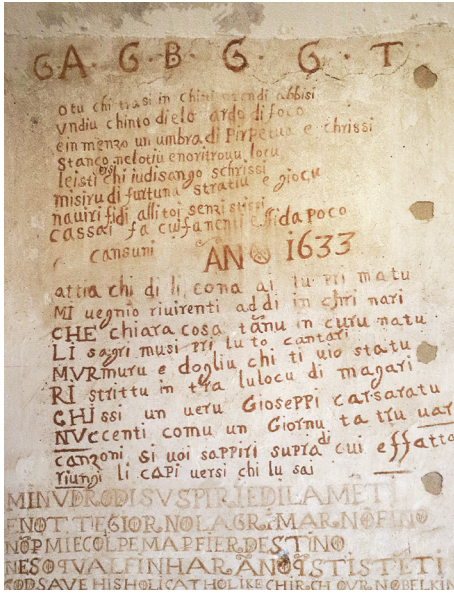 GA · G · B · G · G · T
o tu chi trasi in chisti orrendi abbisi
undiu chinto di elo ardo di foco
e in menzo un umbra di Pirpetua e chrissi
Stanco nelotiu enoritrouu locu
leisti chi iudisango schrissi
misiru di furtuna stratiu e giocu
nauiri fidi alli toi senzi stissi
cassai fa cu fananti effida poco
cansuni
ANO 1633
attia chi di li cona ai lu pri matu
MI uegnio riuirenti addi in chri nari
CHE chiara cosa tanu in curu natu
LI sagri musi pri lu to cantari
MURmuru e dogliu chi ti uio statu
RI strittu in tra lu locu di magari
CHI ssi un ueru Gioseppi carsaratu
NUccenti comu un Giornu ta tru uar
canzoni si uoi sappiri supra di cui effatto
riungi li capi uersi chi lu sai
MI NUDRO DI SUSPIRI E DI LAMETI
E NOT TE GIORNO LAGRIMAR NO FINO
NOP MIE COLPE MA P FIER DESTINO
NESO QUAL FIN HARANO QSTI STETI
GOD SAVE HIS HOLI CATHOLIKE CHIRCH OUR NOBEL KIN